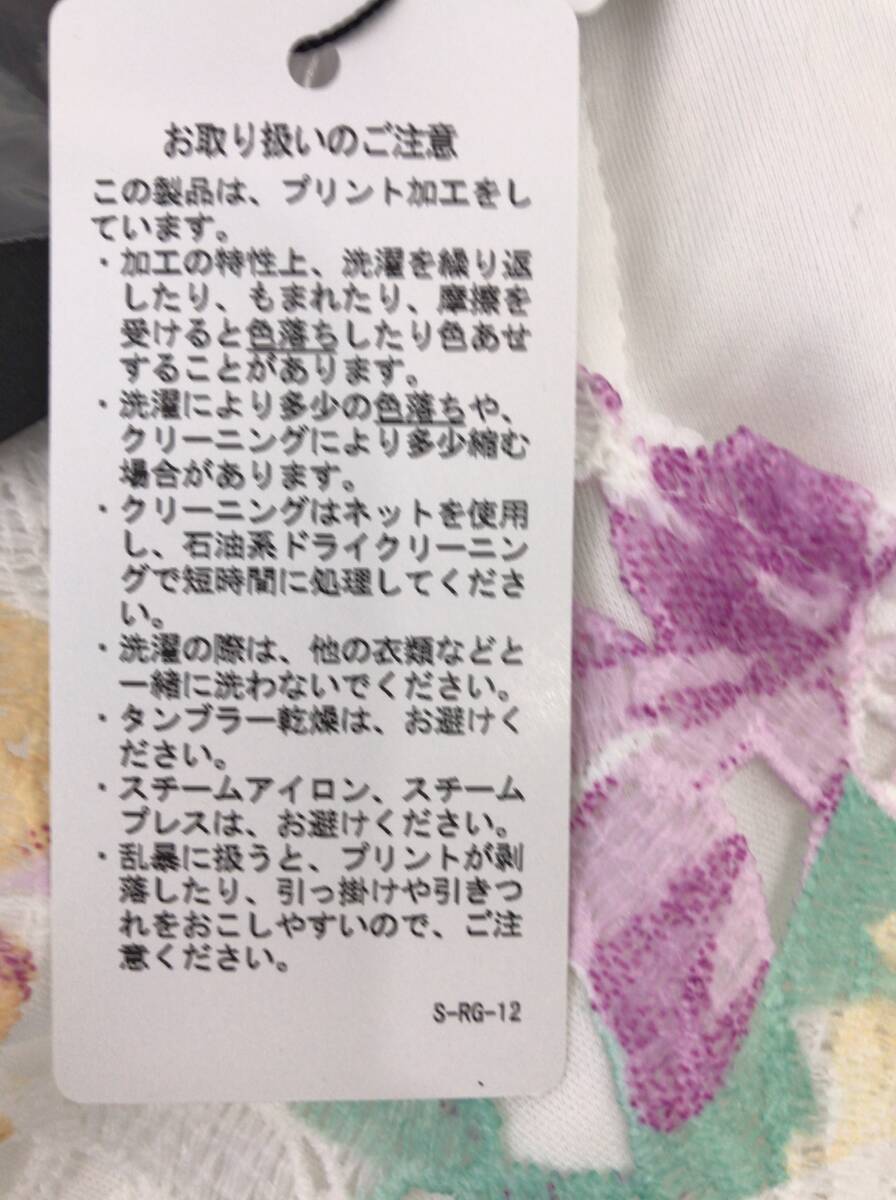 お取り扱いのご注意
この製品は、プリント加工をし
ています。
・加工の特性上、洗濯を繰り返
したり、もまれたり、摩擦を
受けると色落ちしたり色あせ
することがあります。
・洗濯により多少の色落ちや、
クリーニングにより多少縮む
場合があります。
・クリーニングはネットを使用
し、石油系ドライクリーニン
グで短時間に処理してくださ
い。
・洗濯の際は、他の衣類などと
一緒に洗わないでください。
・タンブラー乾燥は、お避けく
ださい。
・スチームアイロン、スチーム
プレスは、お避けください。
・乱暴に扱うと、プリントが剥
落したり、引っ掛けや引きつ
れをおこしやすいので、ご注
意ください。
S-RG-12